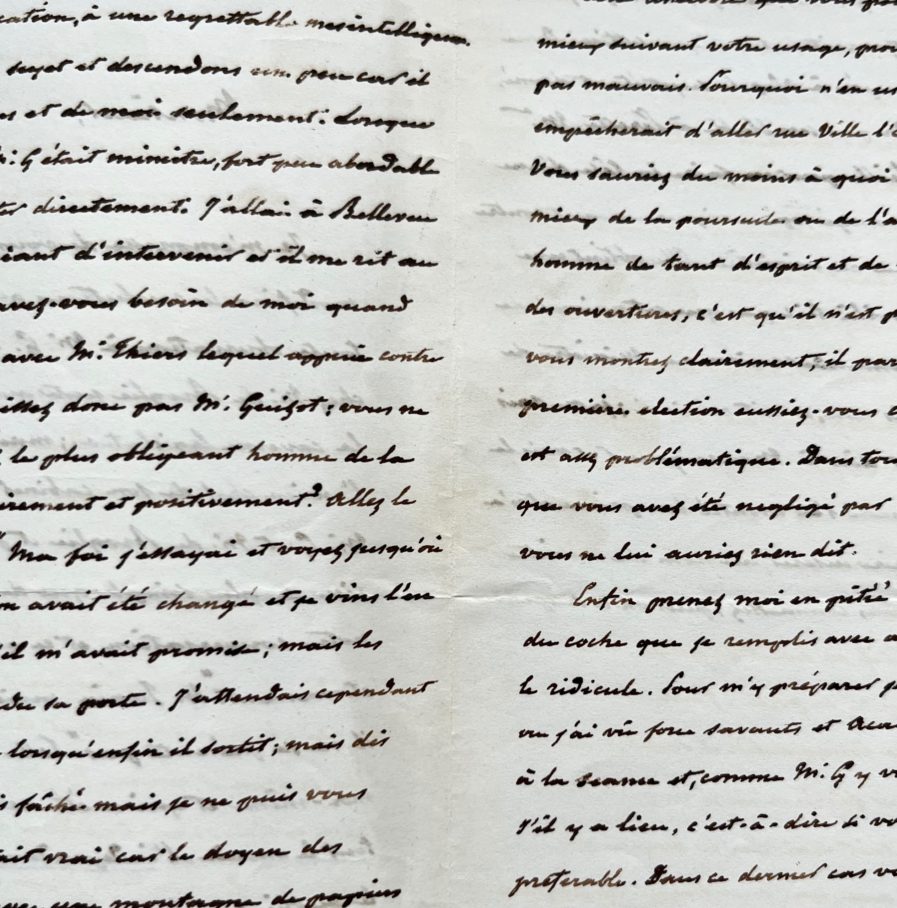 cation, à une regrettable mesintelligence.
sujet et descendons un peu car il
es et de moi seulement: Lorsque
M. G était ministre, fort peu abordable
directement. J'allai à Bellevue
iant d'intervenir et il me rit au
avez-vous besoin de moi quand
avec Mr. Thiers lequel appuie contre
issez donc pas Mr. Guizot; vous ne
le plus obligeant homme de la
irement et positivement? Allez le
" Ma foi j'essayai et voyez jusqu'où
on avait été changé et je vins l'en
il m'avait promise; mais les
sa porte. J'attendais cependant
lorsqu'enfin il sortit; mais dis
s fâché mais je ne puis vous
ait vrai car le doyen des
une montagne de papiers
que vous
mieux suivant votre usage, pro
pas mauvais. Pourquoi n'en us
empêcherait d'aller rue Ville l'é
Vous sauriez du moins à quoi
mieux de la poursuite ou de l'a
homme de tant d'esprit et de
des ouvertures, c'est qu'il n'est p
vous montrez clairement, il par
première election eussiez-vous
est assez problématique. Dans tou
que vous avez été negligé par
vous ne lui auriez rien dit.
Enfin prenez moi en pitié
du coche que je remplis avec a
le ridicule. Pour m'y préparer j
vu j'ai vû force savants et Aca
à la seance et, comme Mr. G y v
S'il y a lieu, c'est-à-dire si vo
preferable. Dans ce dernier cas v